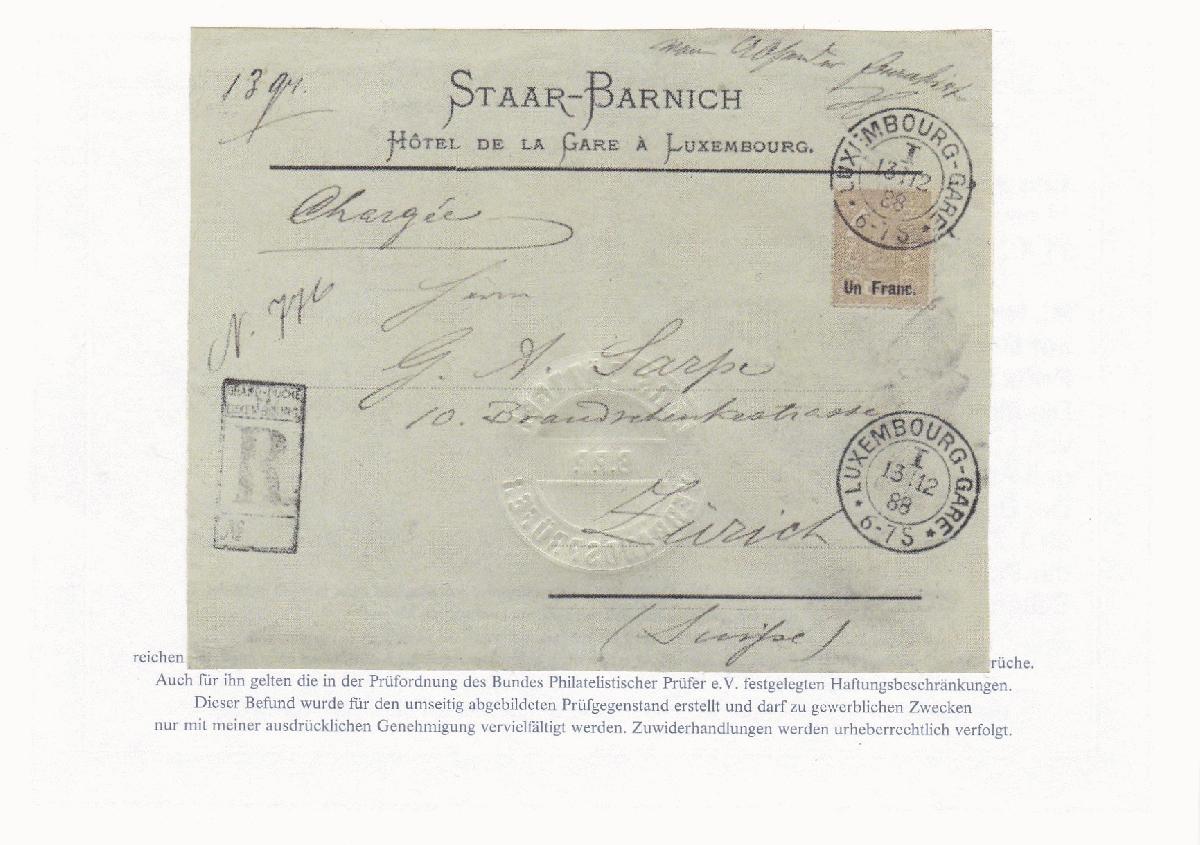 13 gr.
STAAR-BARNICH
HÔTEL DE LA GARE À LUXEMBOURG.
LUXEMBOURG-GARE
I
13/12
88
6-7 S
Chargée
Un Franc.
Herrn
N. 776
G. A. Sarpe
10. Brandschenkestrasse
GRAND-DUCHÉ
LUXEMBOURG
R
No
LUXEMBOURG-GARE
I
13/12
88
6-7 S
Zürich
(Suisse)
reichen rüche.
Auch für ihn gelten die in der Prüfordnung des Bundes Philatelistischer Prüfer e.V. festgelegten Haftungsbeschränkungen.
Dieser Befund wurde für den umseitig abgebildeten Prüfgegenstand erstellt und darf zu gewerblichen Zwecken
nur mit meiner ausdrücklichen Genehmigung vervielfältigt werden. Zuwiderhandlungen werden urheberrechtlich verfolgt.